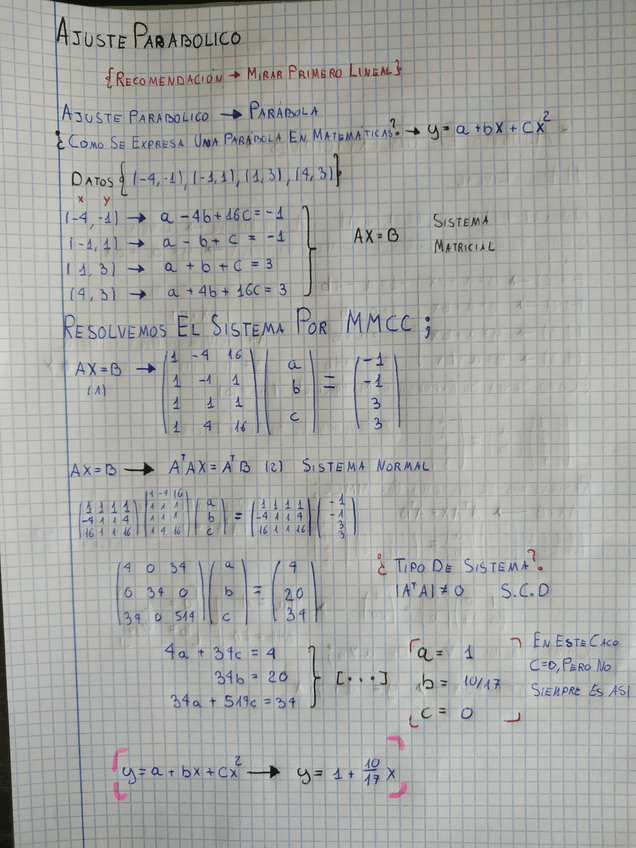 AJUSTE PARABOLICO
{RECOMENDACIÓN → MIRAR PRIMERO LINEAL}
AJUSTE PARABOLICO → PARABOLA
¿COMO SE EXPRESA UNA PARÁBOLA EN MATEMÁTICAS? → y = a + bx + cx²
DATOS {(-4,-1), (-1,1), (1,3), (4,3)}
x y
(-4,-1) → a - 4b + 16c = -1
(-1,1) → a - b + c = -1
(1,3) → a + b + c = 3
(4,3) → a + 4b + 16c = 3
AX = B SISTEMA MATRICIAL
RESOLVEMOS EL SISTEMA POR MMCC ;
AX = B →
(1)
1 -4 16
1 -1 1
1 1 1
1 4 16
a
b
c
=
-1
-1
3
3
AX = B → AᵀAX = AᵀB (2) SISTEMA NORMAL
1 1 1 1
-4 1 1 4
16 1 1 16
1 -4 16
1 1 1
1 1 1
1 4 16
a
b
c
=
1 1 1 1
-4 1 1 4
16 1 1 16
-1
-1
3
3
4 0 34
0 34 0
34 0 514
a
b
c
=
4
20
34
¿TIPO DE SISTEMA?
|AᵀA| ≠ 0 S.C.D
4a + 34c = 4
34b = 20
34a + 514c = 34
[...]
a = 1
b = 10/17
c = 0
EN ESTE CACO
C=0, PERO NO
SIEMPRE ES ASÍ
y = a + bx + cx² → y = 1 + 10/17 x